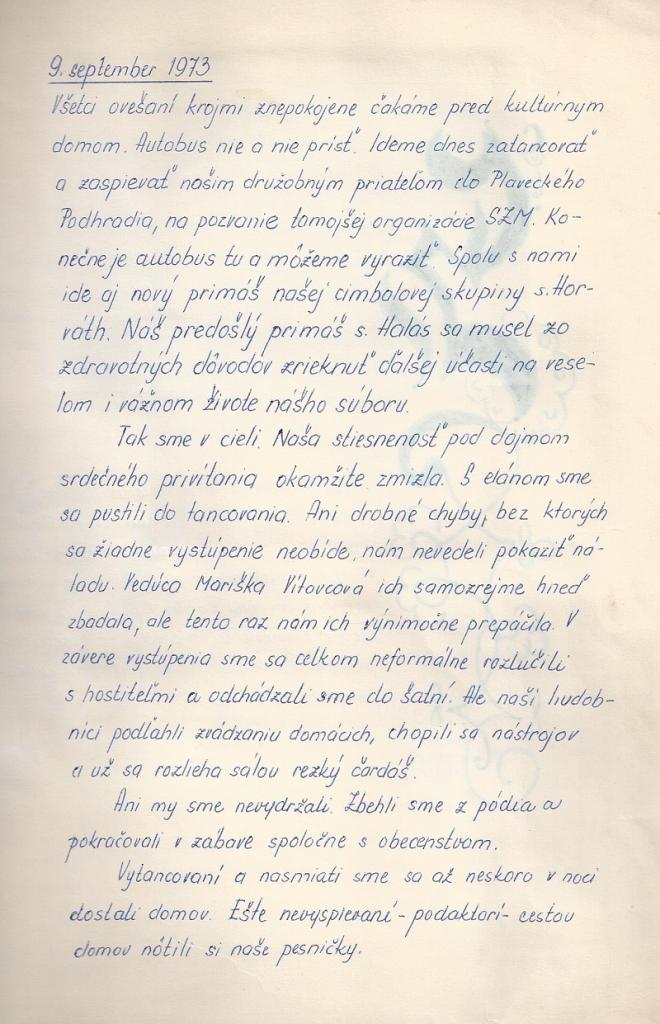 9. september 1973
Všetci ovešaní krojmi znepokojene čakáme pred kultúrnym
domom. Autobus nie a nie prísť. Ideme dnes zatancovať
a zaspievať našim družobným priateľom do Plaveckého
Podhradia, na pozvanie tomojšej organizácie SZM. Ko-
nečne je autobus tu a môžeme vyraziť. Spolu s nami
ide aj nový primáš našej cimbalovej skupiny s. Hor-
váth. Náš predošlý primáš s. Halás sa musel zo
zdravotných dôvodov zrieknuť ďalšej účasti na vese-
lom i vážnom živote nášho súboru.
Tak sme v cieli. Naša stiesnenosť pod dojmom
srdečného privítania okamžite zmizla. S elánom sme
sa pustili do tancovania. Ani drobné chyby, bez ktorých
sa žiadne vystúpenie neobíde, nám nevedeli pokaziť ná-
ladu. Vedúca Mariška Vítovcová ich samozrejme hneď
zbadala, ale tento raz nám ich výnimočne prepáčila. V
závere vystúpenia sme sa celkom neformálne rozlúčili
s hostiteľmi a odchádzali sme do šatní. Ale naši hudob-
níci podľahli zvádzaniu domácich, chopili sa nástrojov
a už sa rozlieha sálou rezký čardáš.
Ani my sme nevydržali. Zbehli sme z pódia a
pokračovali v zábave spoločne s obecenstvom.
Vytancovaní a nasmiati sme sa až neskoro v noci
dostali domov. Ešte nevyspievaní - podaktorí - cestou
domov nôtili si naše pesničky.